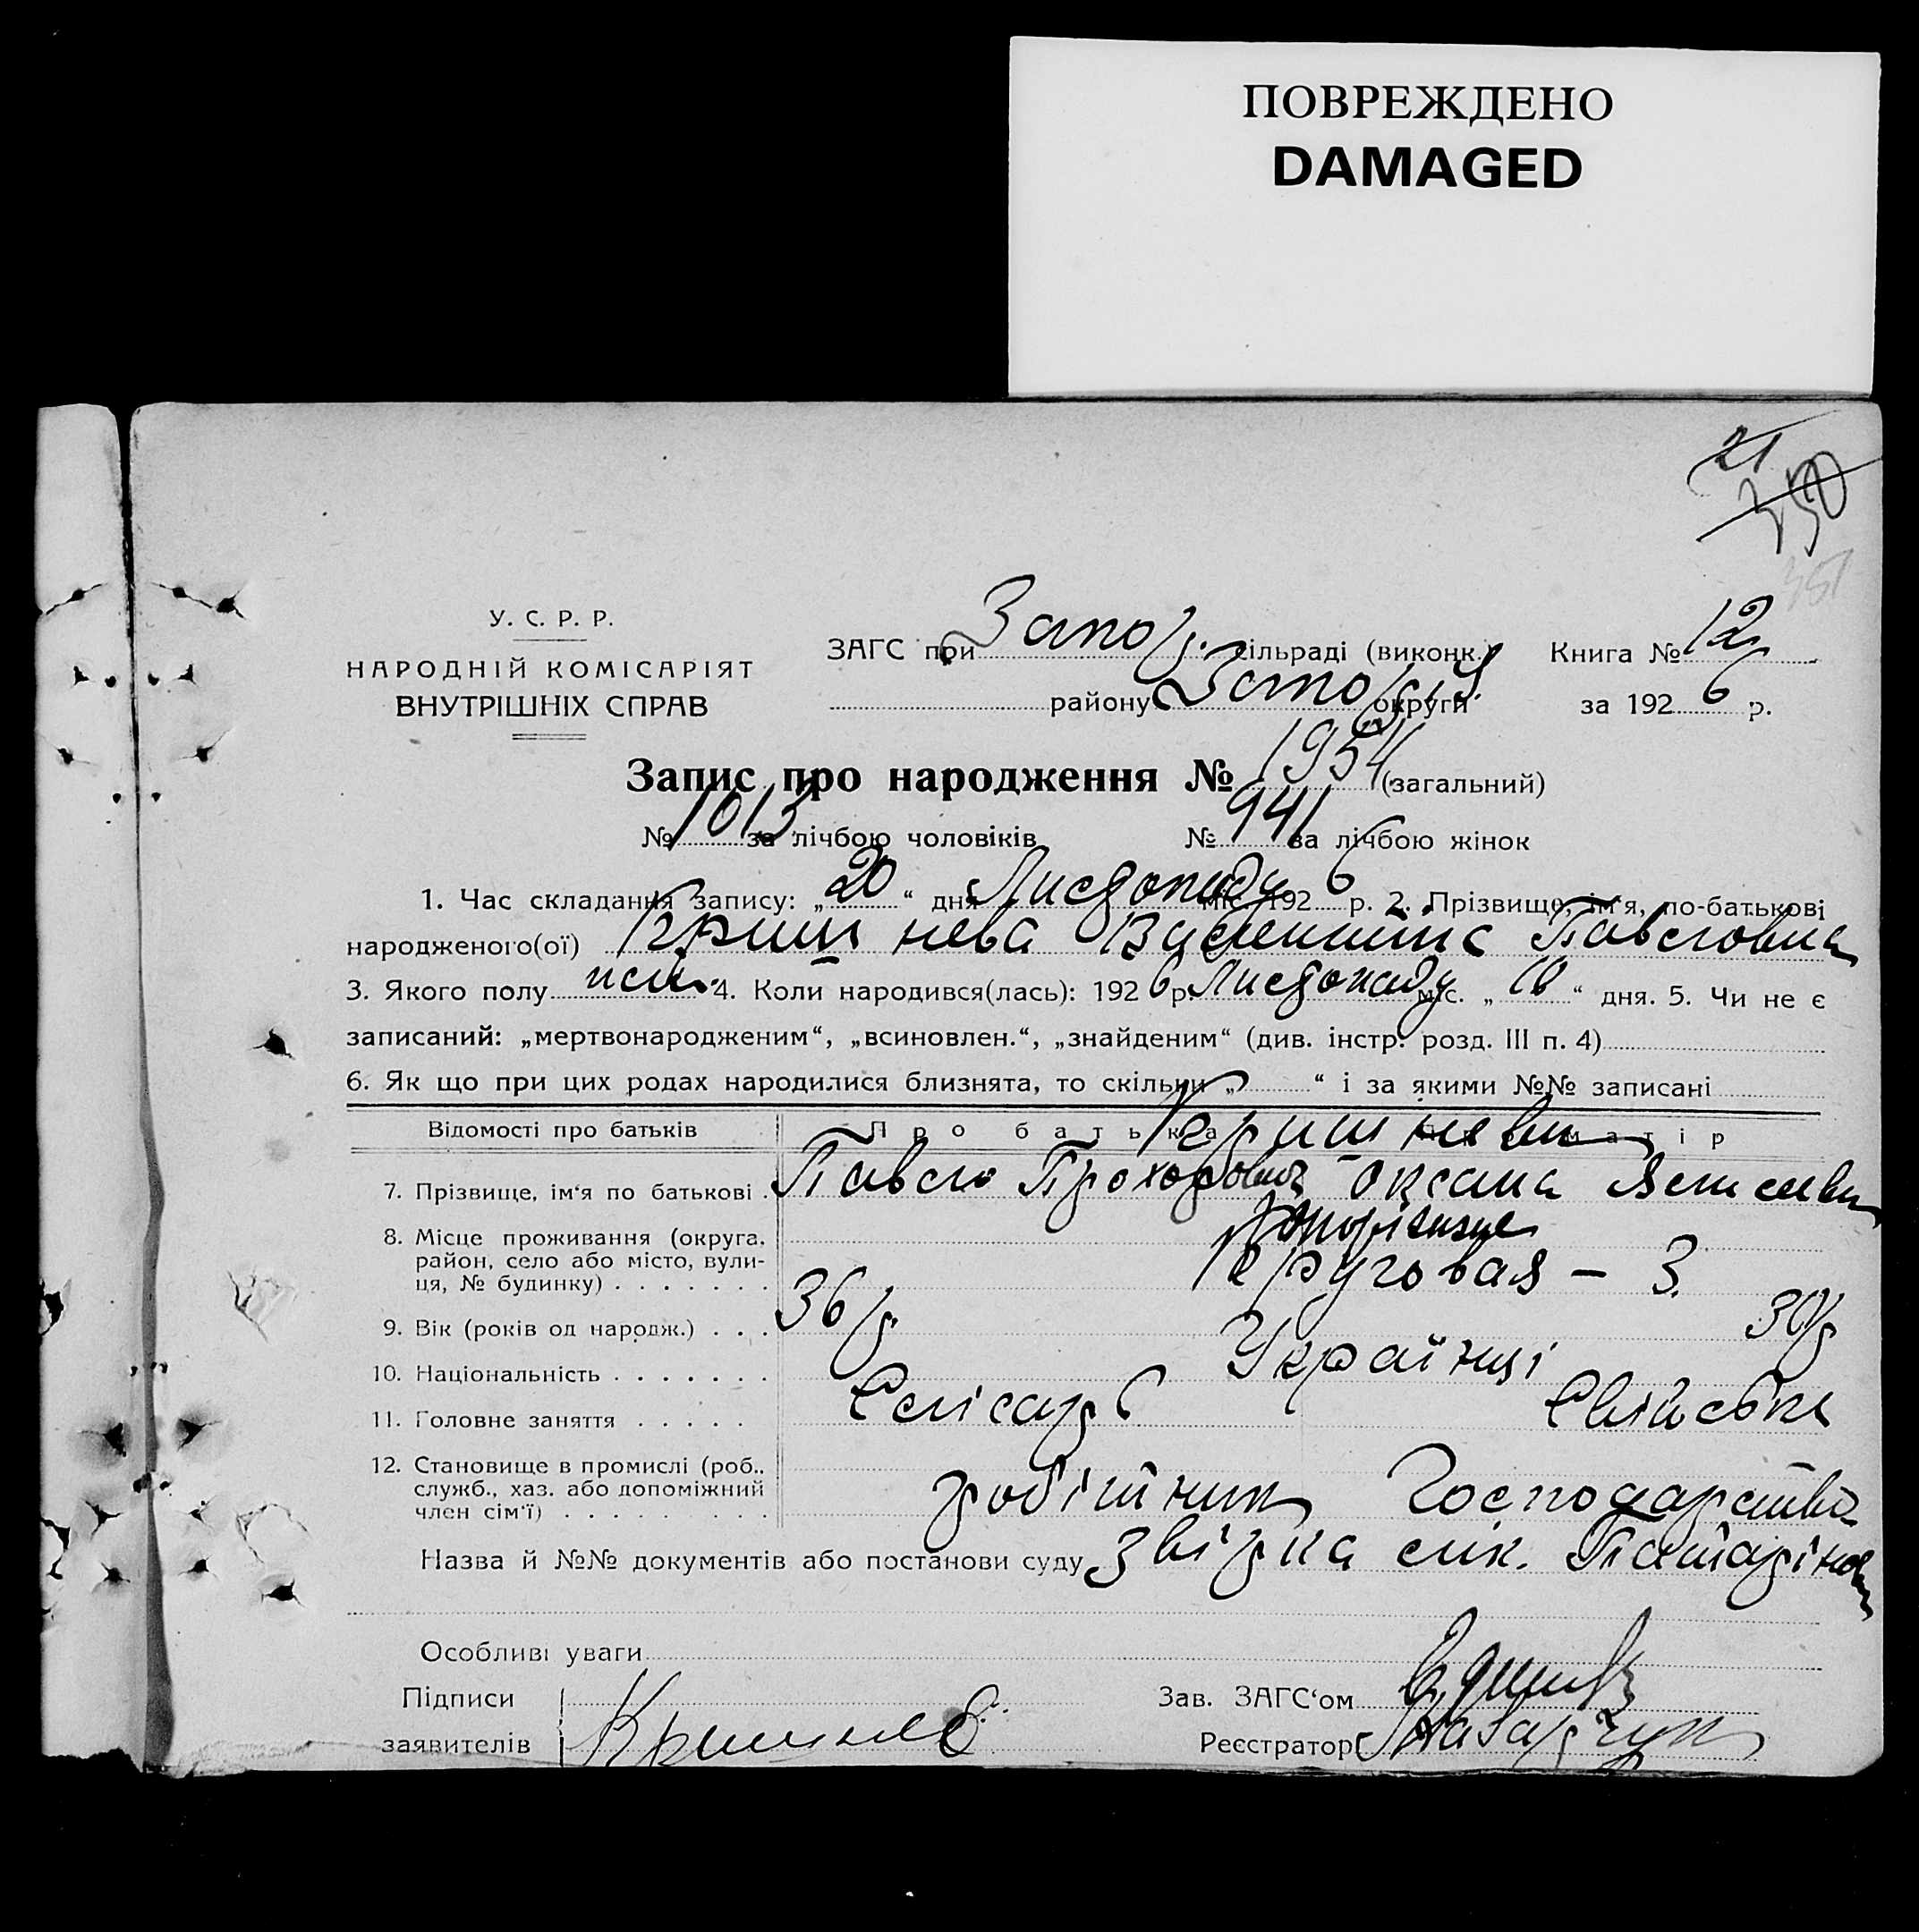 ПОВРЕЖДЕНО
DAMAGED
21
350
351
У. С. Р. Р.
НАРОДНІЙ КОМІСАРІЯТ
ВНУТРІШНІХ СПРАВ
ЗАГС при Запор. сільраді (виконк.) Книга № 12
району округи за 1926 р.
Запис про народження № 1954 (загальний)
№ 1013 за лічбою чоловіків № 941 за лічбою жінок
1. Час складання запису: „20“ дня Листопаду міс. 1926 р. 2. Прізвище, ім'я, по-батькові
народженого(ої) Кришнева Валентина Павловна
3. Якого полу 4. Коли народився(лась): 1926 р. Листопаду міс. „ “ дня. 5. Чи не є
записаний: „мертвонародженим“, „всиновлен.“, „знайденим“ (див. інстр. розд. III п. 4)
6. Як що при цих родах народилися близнята, то скільки „ “ і за якими №№ записані
Відомості про батьків Про батька матір
Кришневи
7. Прізвище, ім'я по батькові . Павло Прохорович Оксана
8. Місце проживання (округа,
район, село або місто, вули-
ця, № будинку) . . . . . . . Круговая – 3.
9. Вік (років од народж.) . . . 36 р. 30 р
10. Національність . . . . . . . Українці
11. Головне заняття . . . . . Слісарь Свійське
12. Становище в промислі (роб..
служб., хаз. або допоміжний
член сім'ї) . . . . . . . . . робітник Господарство
Назва й №№ документів або постанови суду Звірка
Особливі уваги
Підписи
заявителів Кришнев
Зав. ЗАГС'ом
Реєстратор